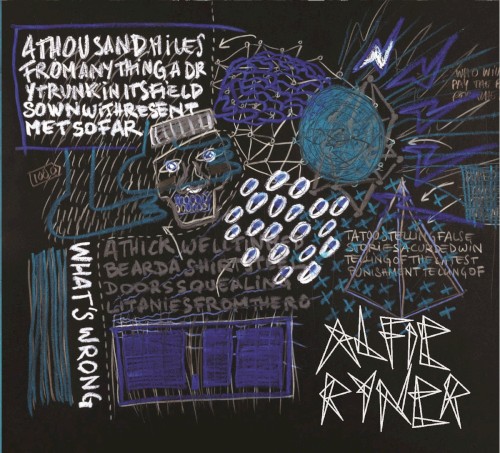 ATHOUSANDMILES
FROMANYTHINGADR
YTRUNKINITSFIELD
SOWNWITHRESENT
METSOFAR
WHO WI
PAY THE
1000
WHAT'S WRONG
ATHICK
BEARDASHI
DOORSSQUEALING
LITANIESFROMTHERO
TATOOSTELLING FALSE
STORIES ACURDEDWIN
TELLING OF THE LATEST
PUNISHMENT TELLING OF
ALFIE
RYNER